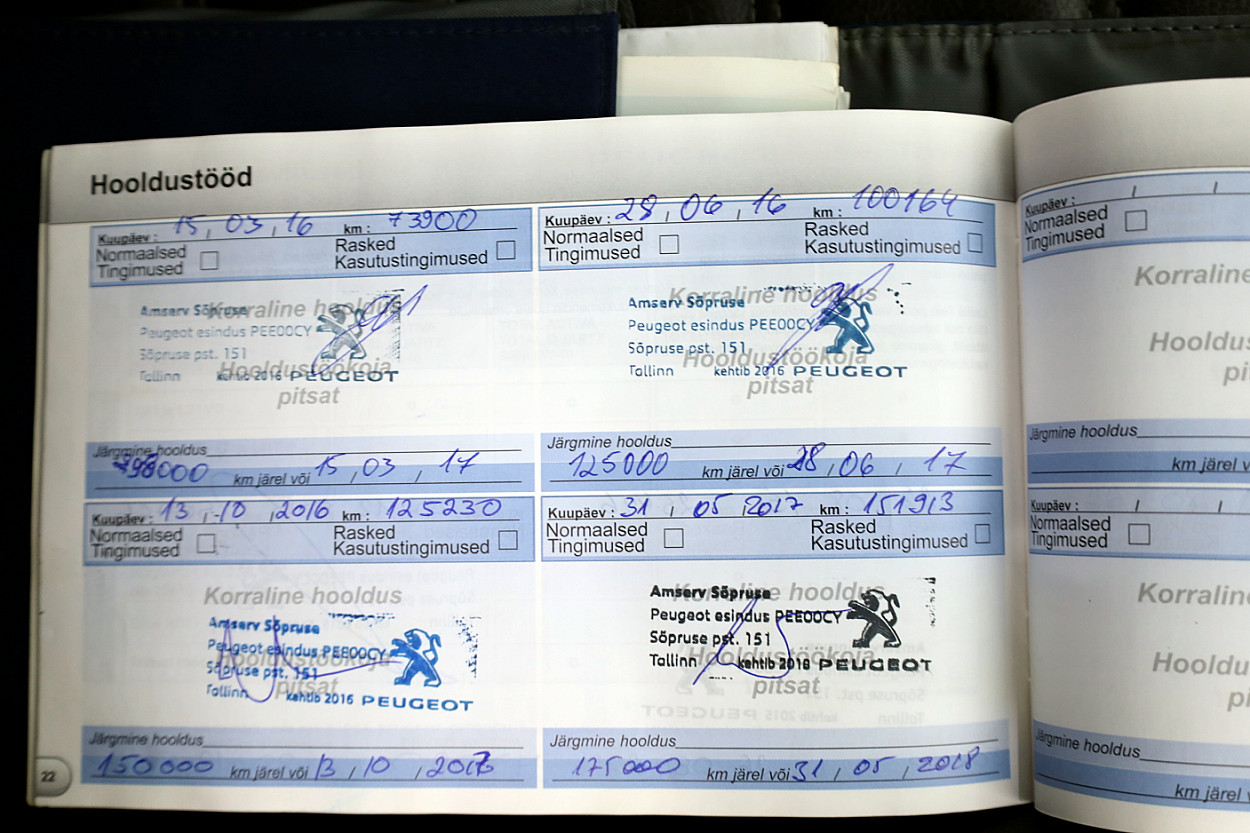 Hooldustööd
Kuupäev : 15 , 03 , 16 km : 73900
Normaalsed Tingimused
Rasked Kasutustingimused
Korraline hooldus
Hooldustöökoja
pitsat
Amserv Sõpruse
Peugeot esindus PEE00CY
Sõpruse pst. 151
Tallinn kehtib 2016 PEUGEOT
Järgmine hooldus
98000 km järel või 15 , 03 , 17
Kuupäev : 28 , 06 , 16 km : 100164
Normaalsed Tingimused
Rasked Kasutustingimused
Korraline hooldus
Hooldustöökoja
pitsat
Amserv Sõpruse
Peugeot esindus PEE00CY
Sõpruse pst. 151
Tallinn kehtib 2016 PEUGEOT
Järgmine hooldus
125000 km järel või 28 , 06 , 17
Kuupäev : 13 , 10 , 2016 km : 125230
Normaalsed Tingimused
Rasked Kasutustingimused
Korraline hooldus
Hooldustöökoja
pitsat
Amserv Sõpruse
Peugeot esindus PEE00CY
Sõpruse pst. 151
Tallinn kehtib 2016 PEUGEOT
Järgmine hooldus
150000 km järel või 13 , 10 , 2017
Kuupäev : 31 , 05 2017 km : 151913
Normaalsed Tingimused
Rasked Kasutustingimused
Korraline hooldus
Hooldustöökoja
pitsat
Amserv Sõpruse
Peugeot esindus PEE00CY
Sõpruse pst. 151
Tallinn kehtib 2016 PEUGEOT
Järgmine hooldus
175000 km järel või 31 , 05 , 2018
22
Kuupäev : / /
Normaalsed Tingimused
Korraline
Hooldus
pi
Järgmine hooldus
km järel v
Kuupäev : / /
Normaalsed Tingimused
Korraline
Hooldus
pi
Järgmine hooldus
km järel v